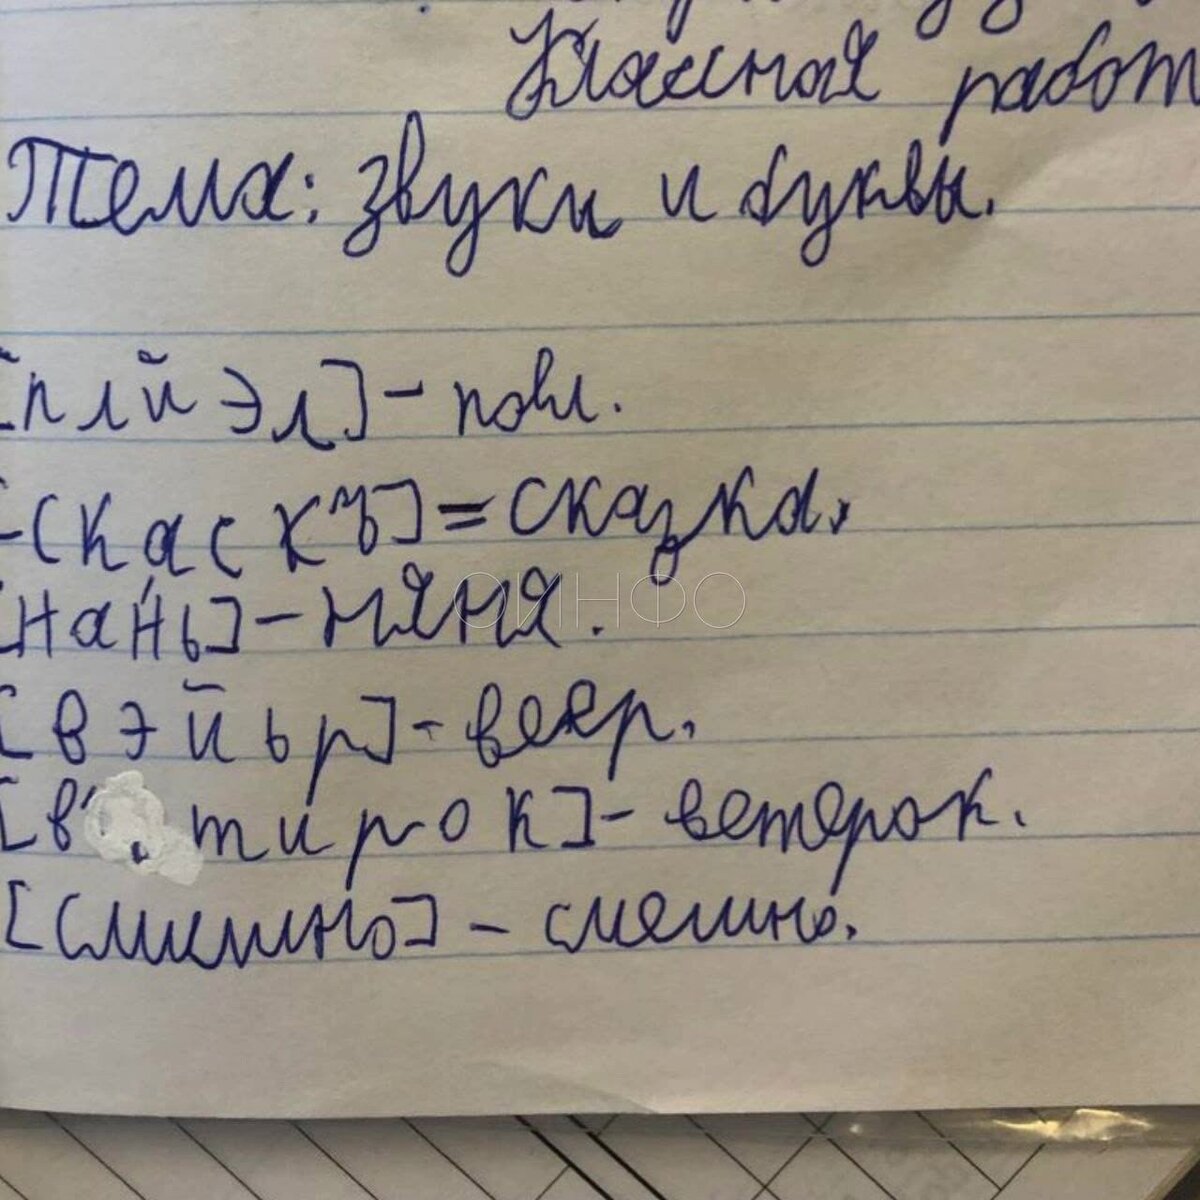 Классная работ
Тема: звуки и буквы.
[п л й э л] -
-[скаскъ] = сказка.
[нань] - няня.
[вэйьр] - веер.
[в' тирок] - ветерок.
[смишно] - смешно.
ОИНФО